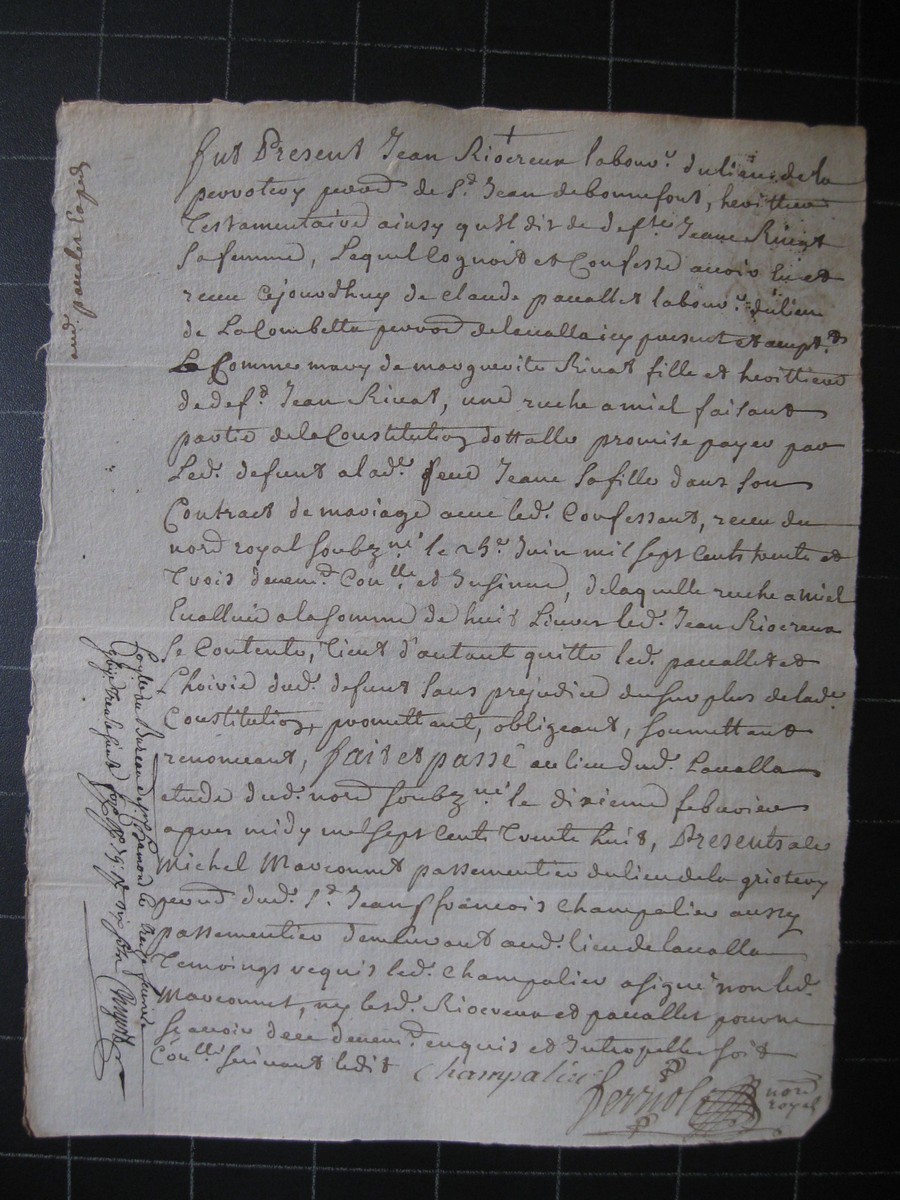 fut Present Jean Riocreux labour.r du lieu de la
perrotery parr.d de S.t Jean de bonnefont, herittier
Testamentaire ainsy qu'il dit de deff.te Jeane Rivat
sa femme, Lequel Cognoit et Confesse avoir eu et
receu cejourdhuy de Claude pauallet labour.r du lieu
de La Combetta parr.d de lavalla icy present et accept.t
Comme mary de marguerite Rivat fille et herittiere
de def.t Jean Rivat, une ruche a miel faisant
partie de la Constitution dottalle promise payer par
Led. defunt a lad. feue Jeane sa fille dans son
Contract de mariage avec led. Confessant, receu du
no.re royal soubz.né le 23.e Juin mil sept cents trente et
Trois deuem.t Con.llé et Insinué, de laquelle ruche a miel
Evalluée a la somme de huit Livres led. Jean Riocreux
Se Contente, Tient d'autant quitte led. pauallet et
hoirie dud. defunt sans prejudice du surplus de lad.
Constitution, promettant, obligeant, soumettant
renonceant, fait et passé au lieu dud. Lavalla
etude dud. no.re soubz.né le dixieme febvrier
apres midy mil sept cents trente huit, Presents a ce
Michel Marconnet passementier du lieu de la griotery
parr.d dud. S.t Jean, françois Champalier aussy
passementier demeurant aud. lieu de lavalla
Temoings requis led. Champalier a signé non led.
Marconnet, ny lesd. Riocreux et pauallet pour ne
Scavoir de ce deuem.t enquis et Interpellés soit
Con.llé suivant ledit
Champalier
no.re
royal
Con.lé au Bureau de S.t Chamond le treize fevrier